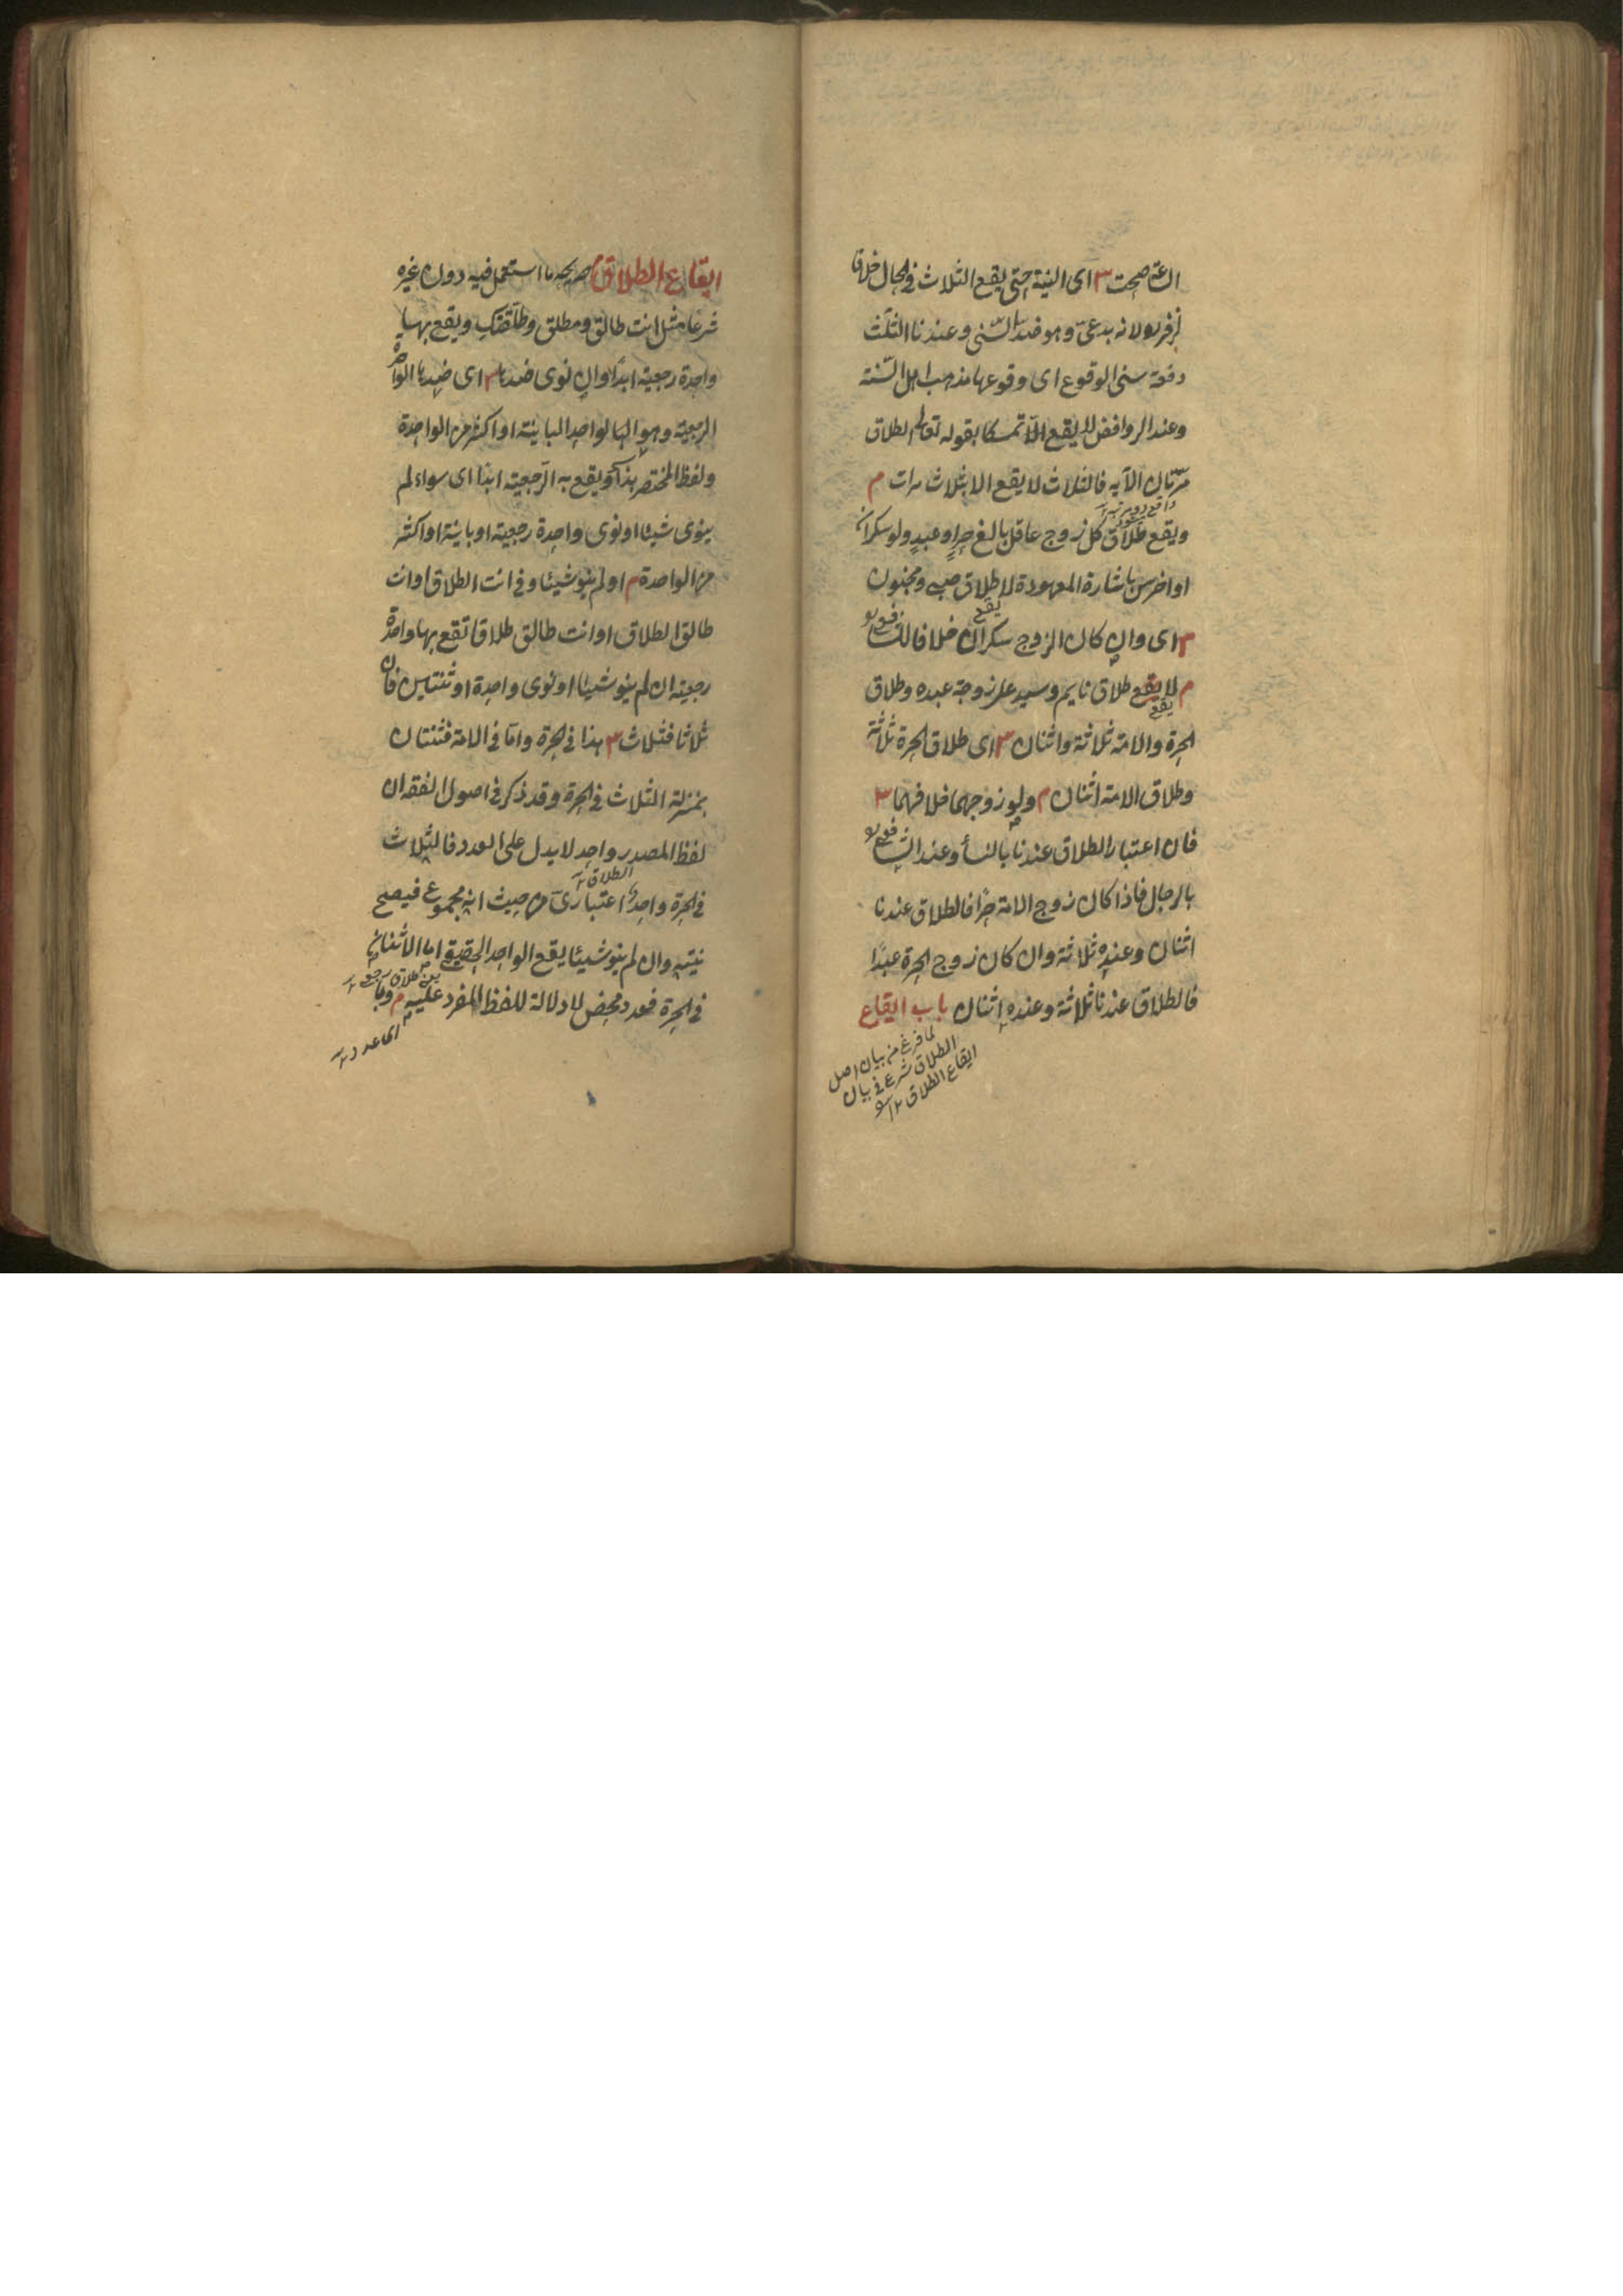 الساعة صحت ش اى النية حتى يقع الثلاث فى الحال خلافا
لزفر لانه بدعى وهو ضد السنى وعندنا الثلث
دفعة سنى الوقوع اى وقوعها مذهب اهل السنة
وعند الروافض لا يقع الا تمسكا بقوله تعالى الطلاق
مرتان الآية فالثلاث لا يقع الا بثلاث مرات م
ويقع طلاق كل زوج عاقل بالغ حر او عبد ولو سكران
او اخرس باشارة المعهودة لا طلاق صبى ومجنون
ش اى وان كان الزوج سكران خلافا للشافعى
يقع
م لا يقع طلاق نايم وسيد على زوجة عبده وطلاق
يقع
الحرة والامة ثلاثة واثنان ش اى طلاق الحرة ثلاثة
وطلاق الامة اثنان م ولو زوجهما خلافهما ش
فان اعتبار الطلاق عندنا بالنسأ وعند الشافعى
بالرجال فاذا كان زوج الامة حرا فالطلاق عندنا
اثنان وعنده ثلاثة وان كان زوج الحرة عبدا
فالطلاق عندنا ثلاثة وعنده اثنان باب ايقاع
لما فرغ من بيان اصل
الطلاق شرع فى بيان
ايقاع الطلاق ١٢
ايقاع الطلاق م صريحه ما استعمل فيه دون غيره
شرعا مثل انت طالق ومطلق وطلقتك ويقع بها
واحدة رجعية ابدا وان نوى ضدها ش اى ضد الواحدة
الرجعية وهو الواحد الباينة او اكثر من الواحدة
ولفظ المختصر هذا ويقع به الرجعية ابدا اى سواء لم
ينوى شيئا او نوى واحدة رجعية او باينة او اكثر
من الواحدة م او لم ينو شيئا وفى انت الطلاق او انت
طالق الطلاق او انت طالق طلاقا تقع بها واحدة
رجعية ان لم ينو شيئا او نوى واحدة او ثنتين فان
ثلاثا فثلاث ش هذا فى الحرة واما فى الامة فثنتان
بمنزلة الثلاث فى الحرة وقد ذكر فى اصول الفقه ان
لفظ المصدر واحد لا يدل على العدد فالثلاث
الطلاق ١٢
فى الحرة واحد اعتبارى من حيث انه مجموع فيصح
نيته وان لم ينو شيئا يقع الواحد الحقيقى اما الاثنان
فى الحرة فعدد محض لا دلالة للفظ المفرد عليه م وبا
اى عدد ١٢